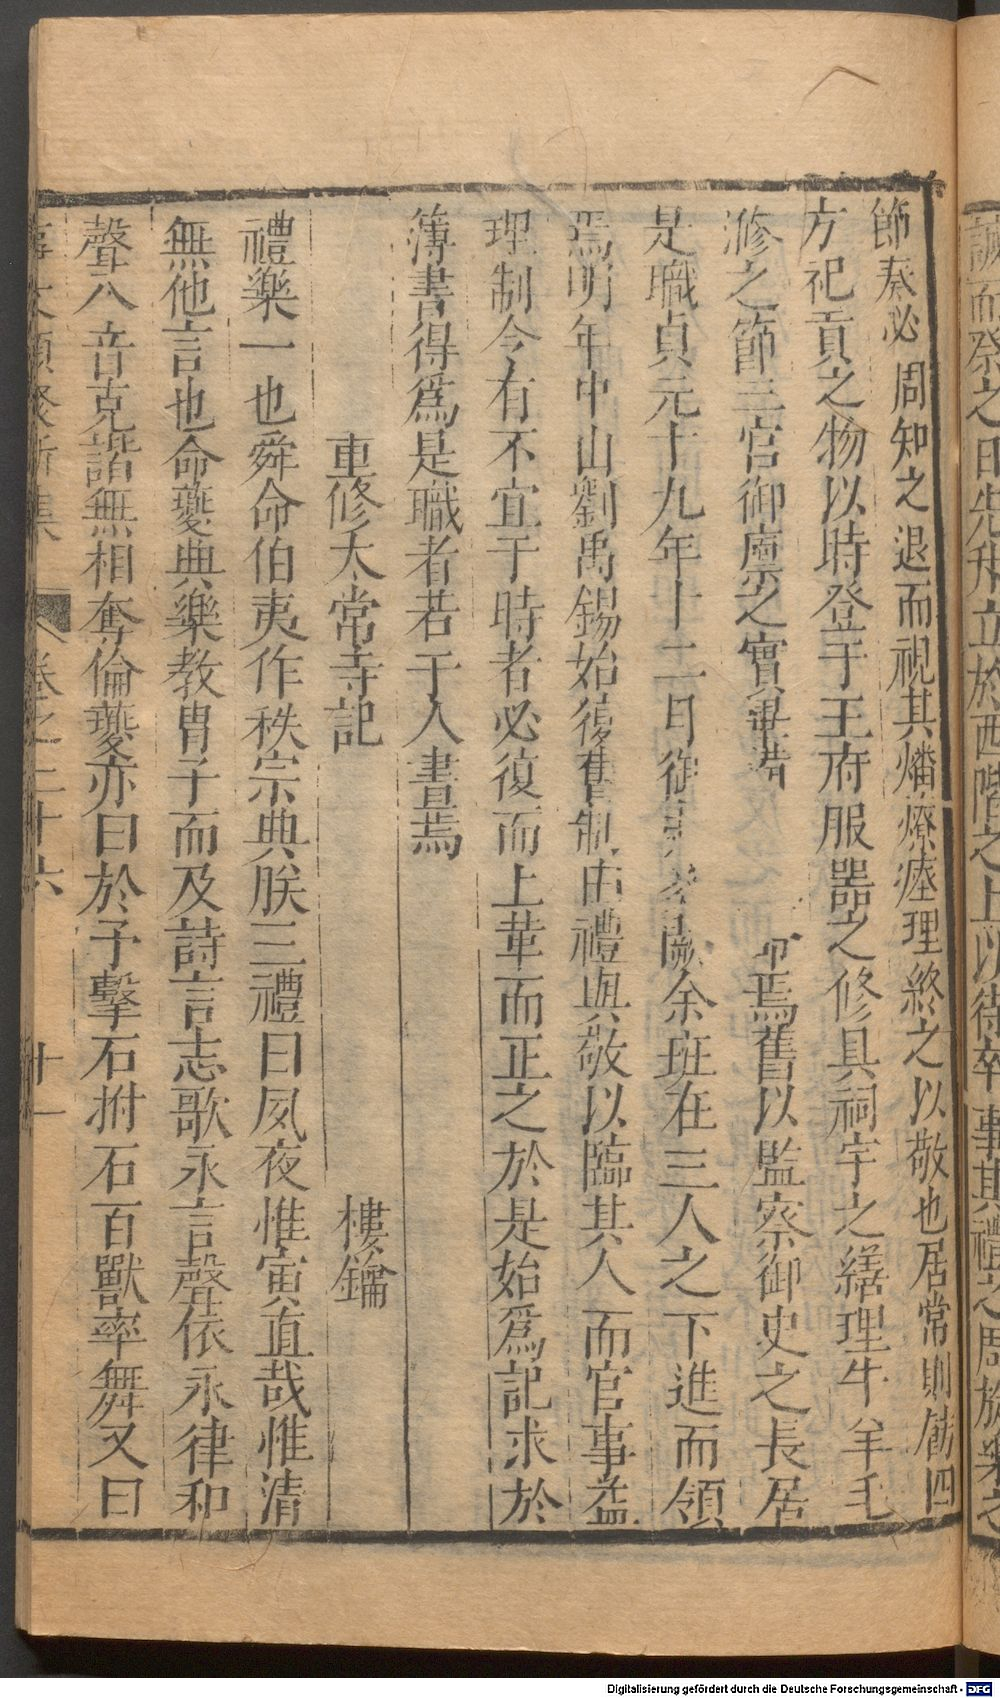 誠而祭之日先升立於西階之上以待卒事其禮之周旋樂之
節奏必周知之退而視其燔燎瘞理終之以敬也居常則飭四
方祀貢之物以時登于王府服器之修具祠宇之繕理牛羊毛
滌之節三官御廩之實畢備 命焉舊以監察御史之長居
是職貞元十九年十二月御 闕余班在三人之下進而領
焉明年中山劉禹錫始復舊制由禮與敬以臨其人而官事益
理制今有不宜于時者必復而上革而正之於是始爲記求於
簿書得爲是職者若于人書焉
重修太常寺記 樓鑰
禮樂一也舜命伯夷作秩宗典朕三禮曰夙夜惟寅直哉惟清
無他言也命夔典樂教胄子而及詩言志歌永言聲依永律和
聲八音克諧無相奪倫夔亦曰於予擊石拊石百獸率舞又曰
事文類聚新集 卷之二十六 十一
Digitalisierung gefördert durch die Deutsche Forschungsgemeinschaft - DFG